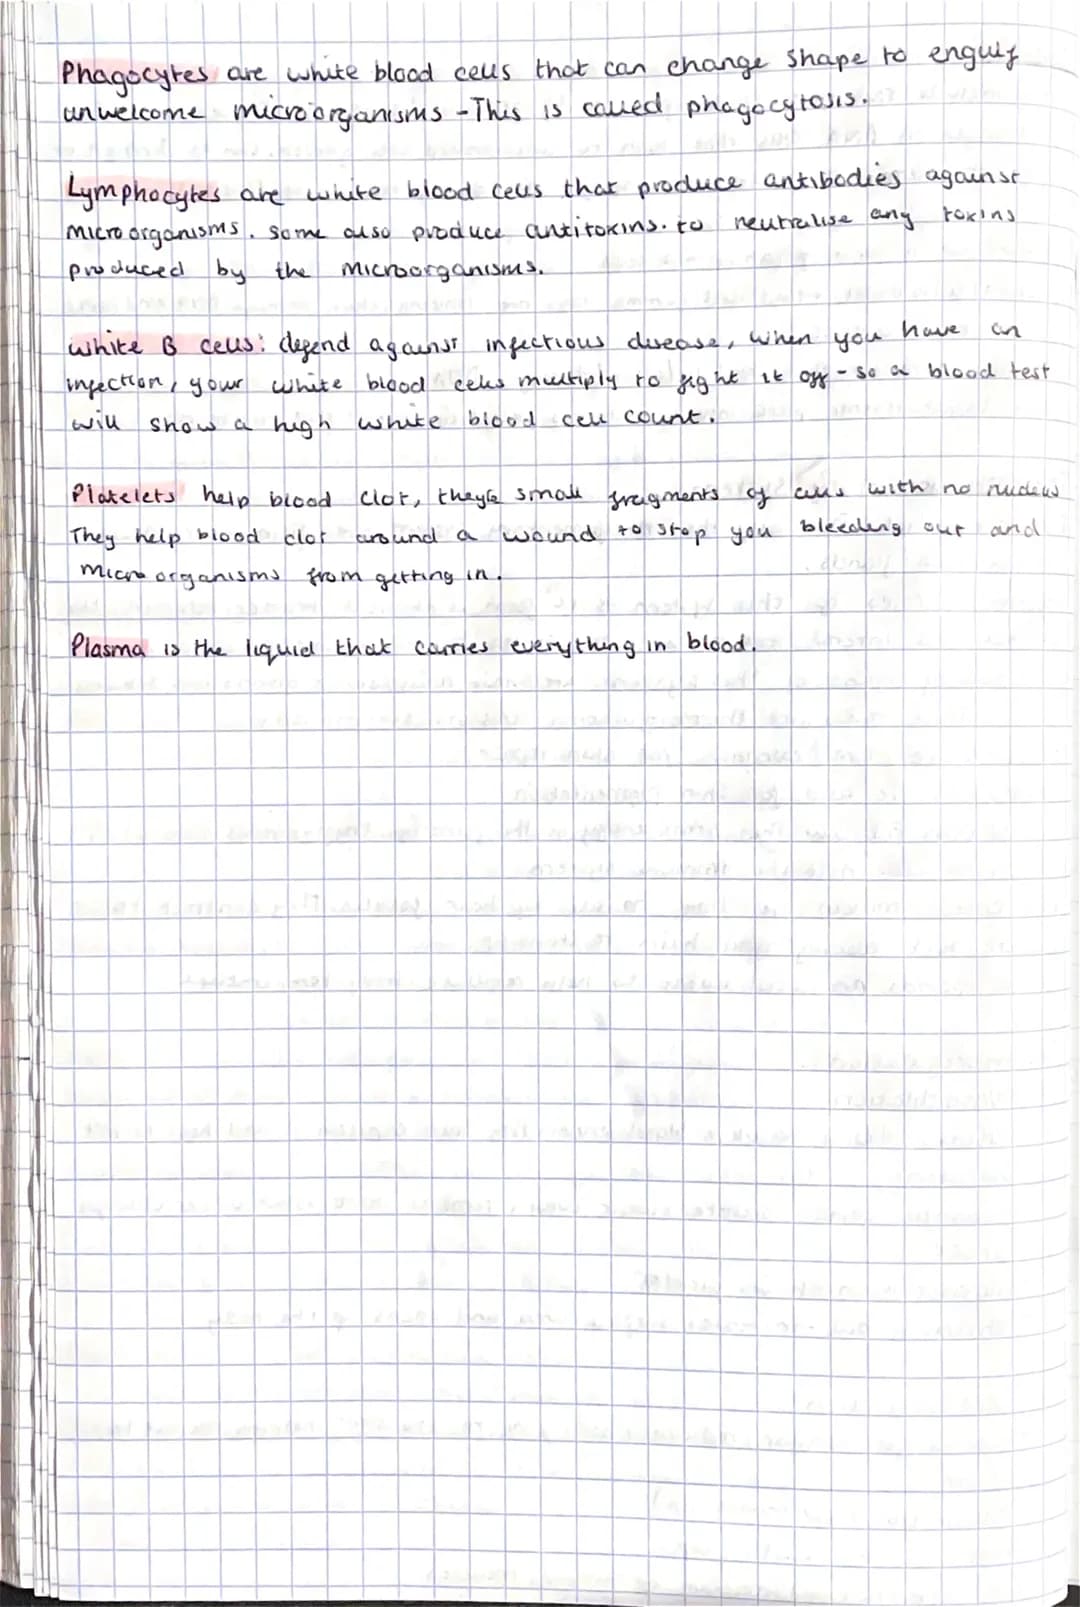 Phagocytes are white blood cells that can change shape to engulf
unwelcome microorganisms - This is called phagocytosis.
Lymphocytes are white blood cells that produce antibodies against
microorganisms. Some also produce antitoxins. to neutralise any toxins
produced by the microorganisms.
White B cells: defend against infectious disease, when you have an
infection, your white blood cells multiply to fight it off - so a blood test
will show a high white blood cell count.
Platelets help blood clot, they're small fragments of cells with no nucleus
They help blood clot around a wound to stop you bleeding out and
microorganisms from getting in.
Plasma is the liquid that carries everything in blood.